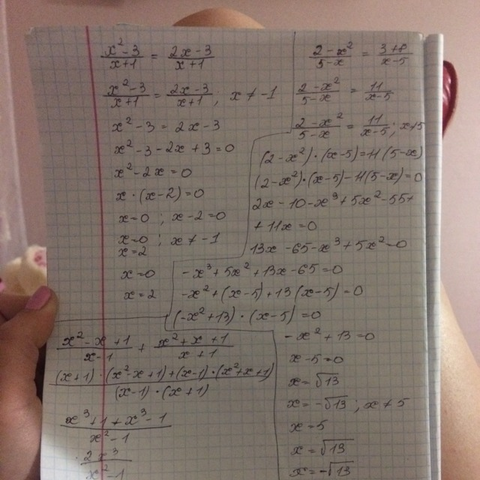 x²-3/x+1 = 2x-3/x+1
x²-3/x+1 = 2x-3/x+1, x≠-1
x²-3 = 2x-3
x²-3-2x+3=0
x²-2x=0
x·(x-2)=0
x=0; x-2=0
x=0; x≠-1
x=2
x=0
x=2
2-x²/5-x = 3+8/x-5
2-x²/5-x = 11/x-5
2-x²/5-x = 11/x-5; x≠5
(2-x²)·(x-5)=11(5-x)
(2-x²)·(x-5)-11(5-x)=0
2x-10-x³+5x²-55+
+11x=0
13x-65-x³+5x²=0
-x³+5x²+13x-65=0
-x²+(x-5)+13(x-5)=0
(-x²+13)·(x-5)=0
-x²+13=0
x-5=0
x=√13
x=-√13; x≠5
x=5
x=√13
x=-√13
x²-x+1/x-1 + x²+x+1/x+1
(x+1)·(x²-x+1)+(x-1)·(x²+x+1)/(x-1)·(x+1)
x³+1+x³-1/x²-1
2x³/x²-1